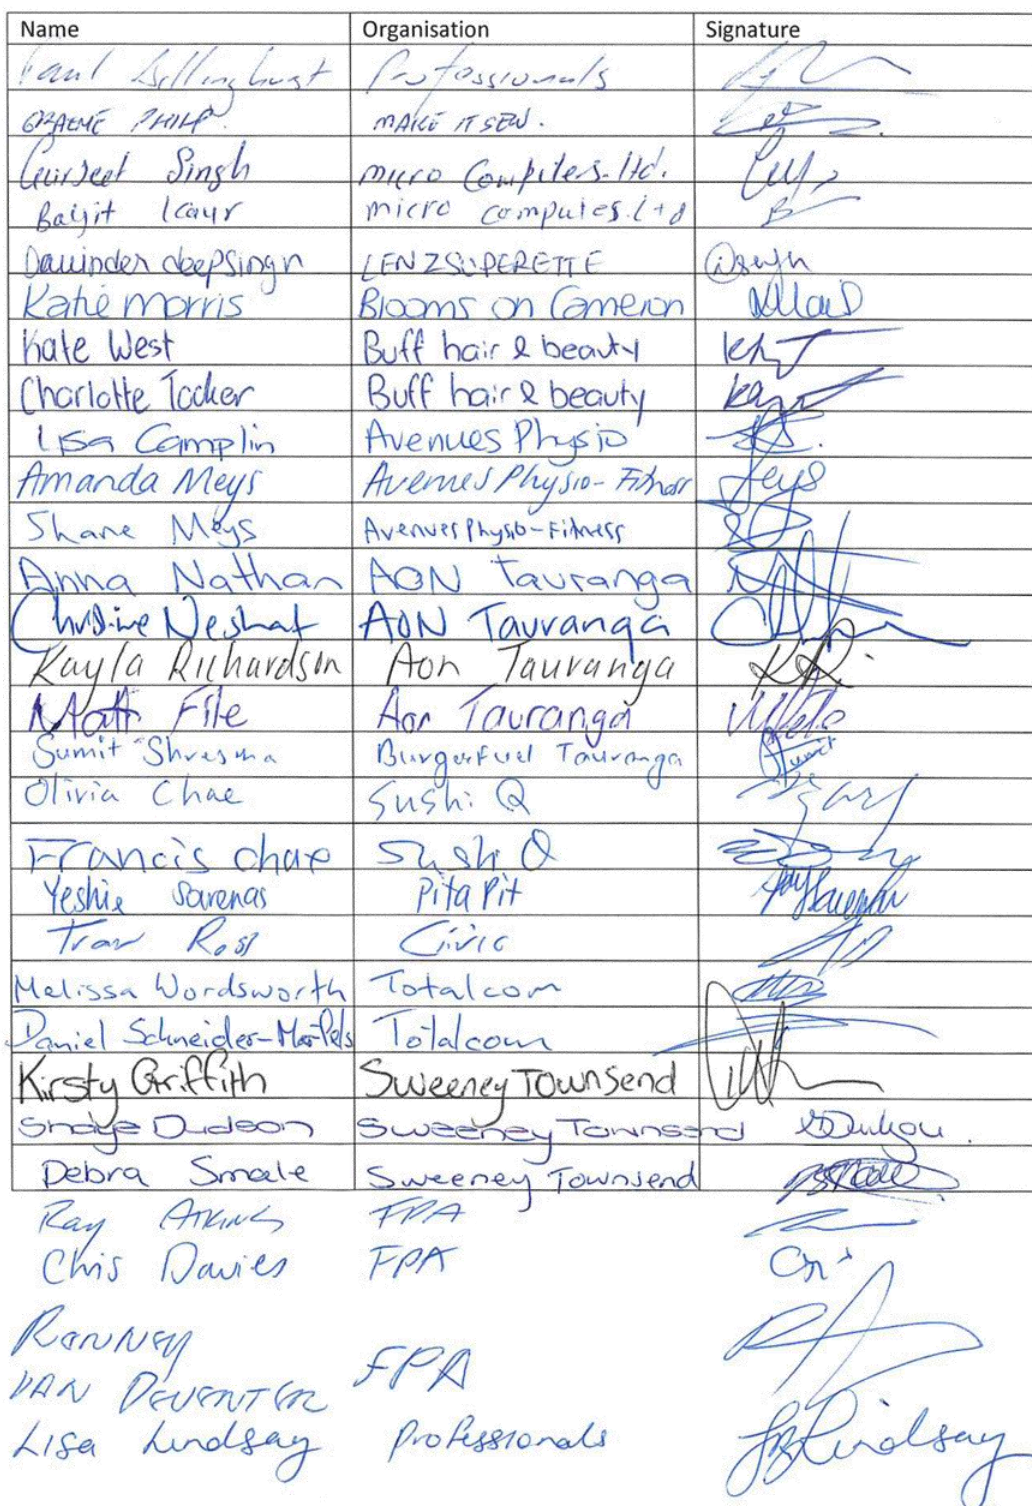 Name Organisation Signature
Paul Billinghurst Professionals
GRAEME PHILP. MAKE IT SEW.
Gurjeet Singh micro Compiters. ltd.
Baljit Kaur micro computes. Ltd
Dauinder deepsingh LENZSUPERETTE
Katie Morris Blooms on Cameron
Kate West Buff hair & beauty
Charlotte Tocker Buff hair & beauty
Lisa Camplin Avenues Physio
Amanda Meys Avenues Physio-Fitness
Shane Meys Avenues Physio-Fitness
Anna Nathan AON Tauranga
Christine Neshat AON Tauranga
Kayla Richardson Aon Tauranga KR.
Matt File Aon Tauranga
Sumit Shresma Burgerfuel Tauranga Sumit
Olivia Chae Sushi Q
Francis chae Sushi Q
Yeshie Sarenas Pita Pit
Trav Ross Civic
Melissa Wordsworth Totalcom
Daniel Schneider-Martels Totalcom
Kirsty Griffith Sweeney Townsend
Shaye Dudson Sweeney Townsend
Debra Smale Sweeney Townsend
Ray Atkins FPA
Chris Davies FPA
RONNEY
VAN DEVENTER FPA
Lisa Lindsay Professionals Lindsay